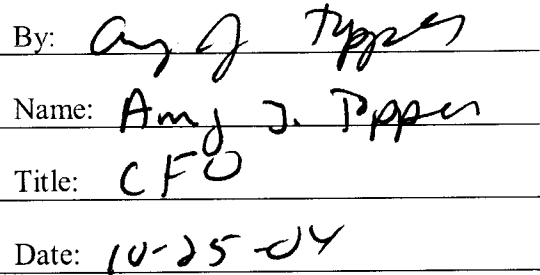 By: Amy J Typper
Name: Amy J. Typper
Title: CFO
Date: 10-25-04